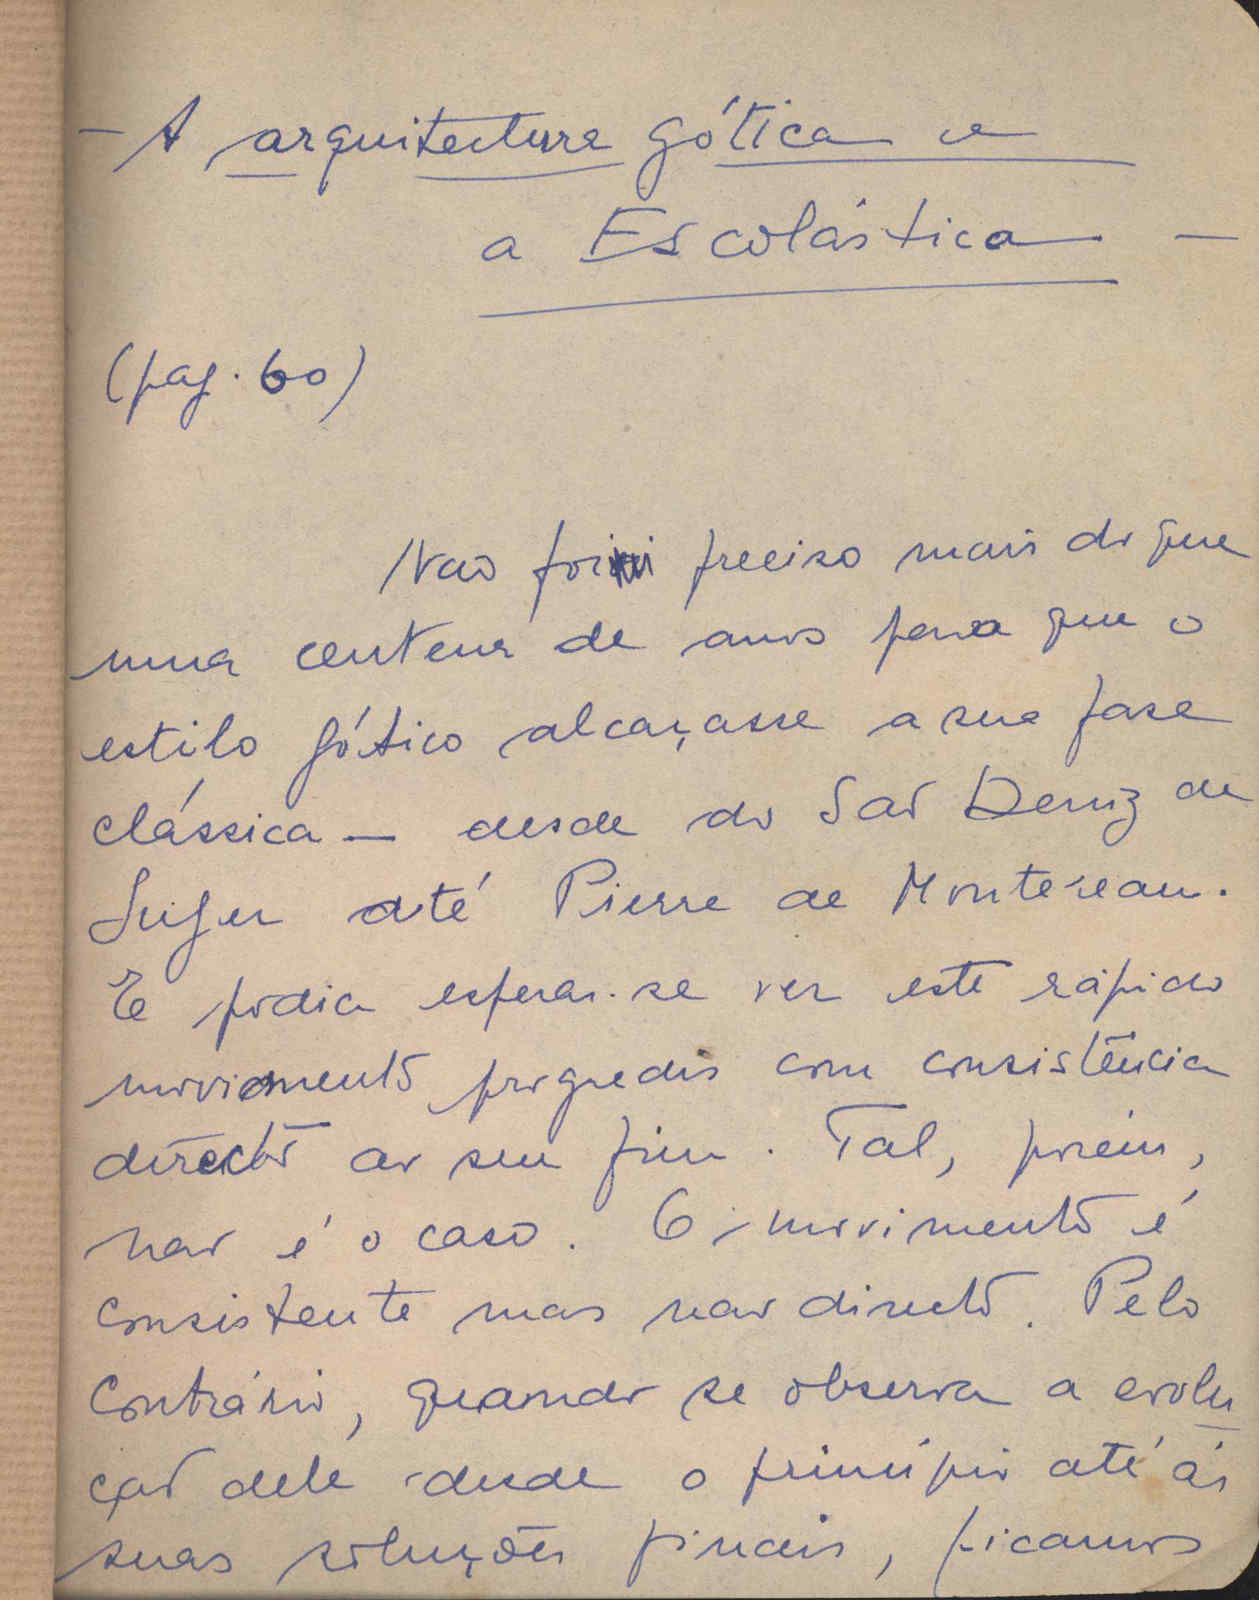 – A arquitectura gótica e
a Escolástica –
(pag. 60)
Não foi preciso mais do que
uma centena de anos para que o
estilo gótico alcaçasse a sua fase
clássica — desde do São Deniz de
Suger até Pierre de Montereau.
E podia esperar-se ver este rápido
movimento progredir com consistência
directo ao seu fim. Tal, porém,
não é o caso. O movimento é
consistente mas não directo. Pelo
contrário, quando se observa a evolu
ção dele desde o princípio até ás
suas soluções finais, ficamos